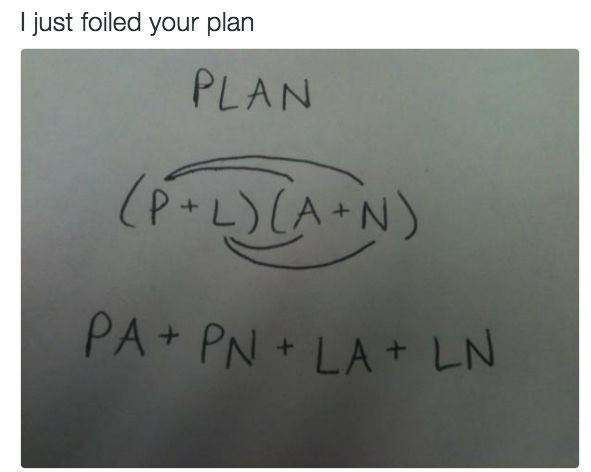 I just foiled your plan
PLAN
(P+L)(A+N)
PA+ PN + LA+ LN